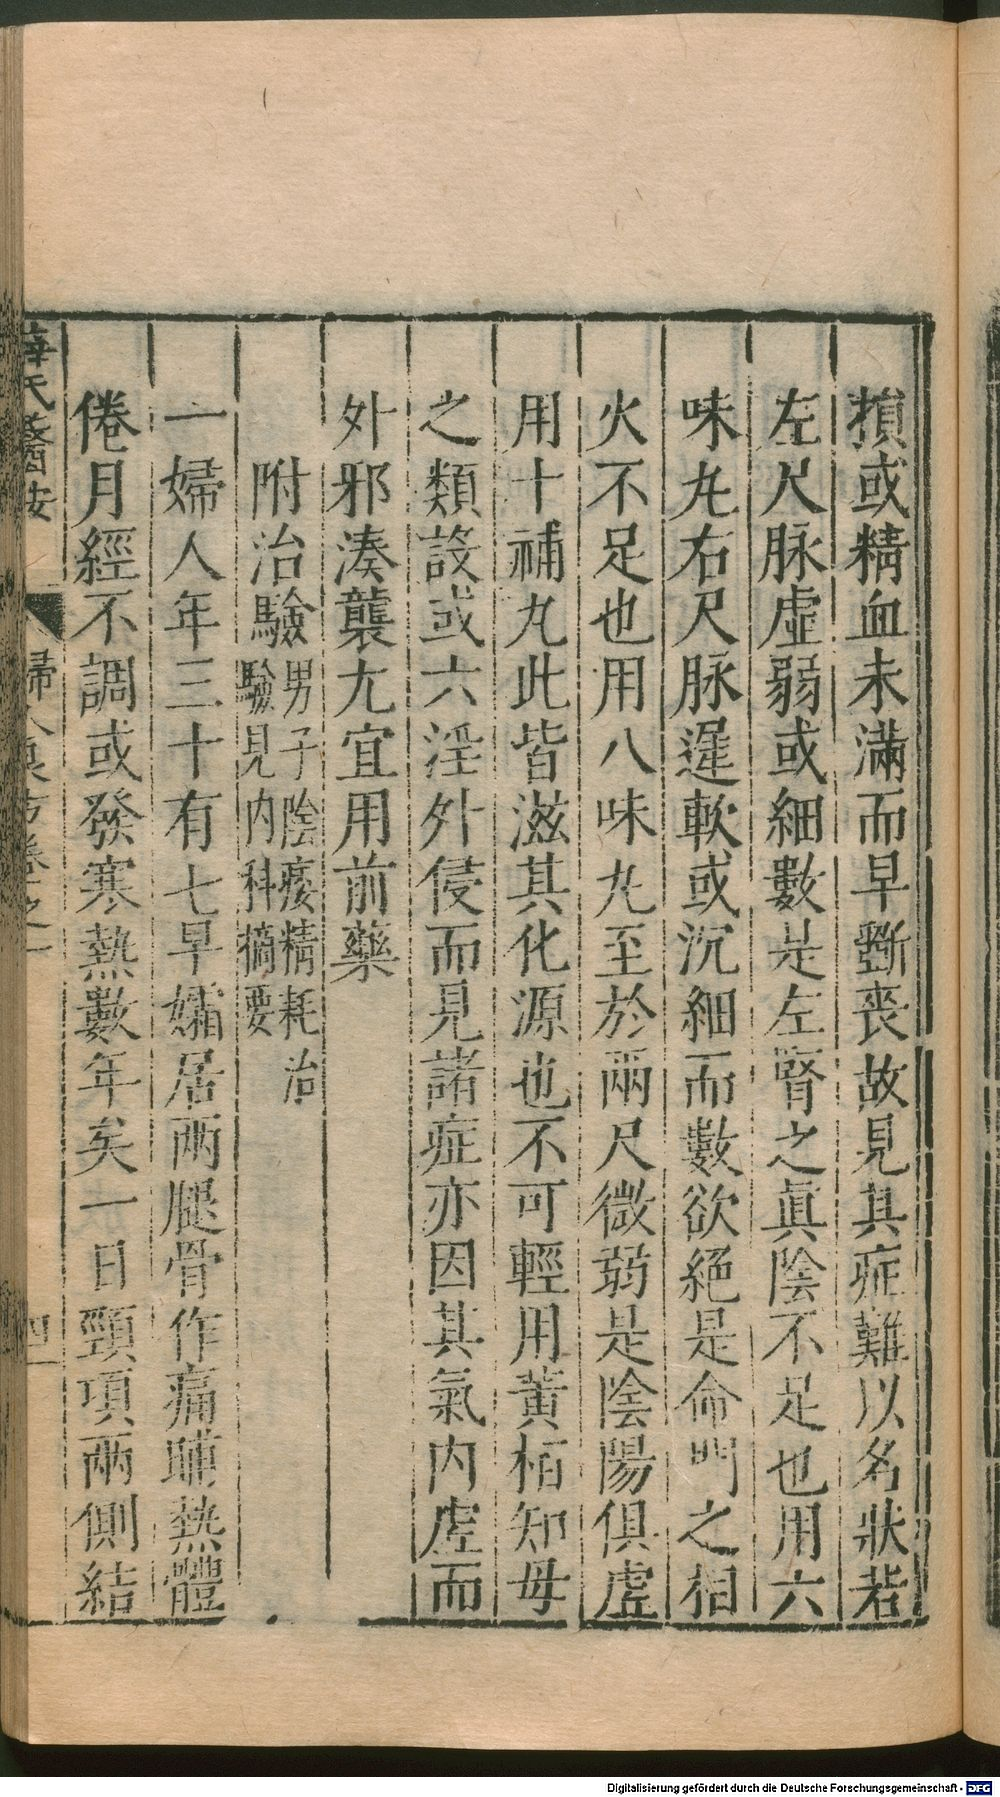 損或精血未滿而早斲喪故見其症難以名狀若
左尺脉虛弱或細數是左腎之眞陰不足也用六
味丸右尺脉遲軟或沉細而數欲絕是命門之相
火不足也用八味丸至於兩尺微弱是陰陽俱虛
用十補丸此皆滋其化源也不可輕用黄栢知毋
之類設或六淫外侵而見諸症亦因其氣内虛而
外邪湊襲尢宜用前藥
附治驗男子陰痿精耗治
驗見内科摘要
一婦人年三十有七早孀居兩腿骨作痛晡熱體
倦月經不調或發寒熱數年矣一日頸項兩側結
薛氏醫按 婦人良方卷之一 四
Digitalisierung gefördert durch die Deutsche Forschungsgemeinschaft - DFG